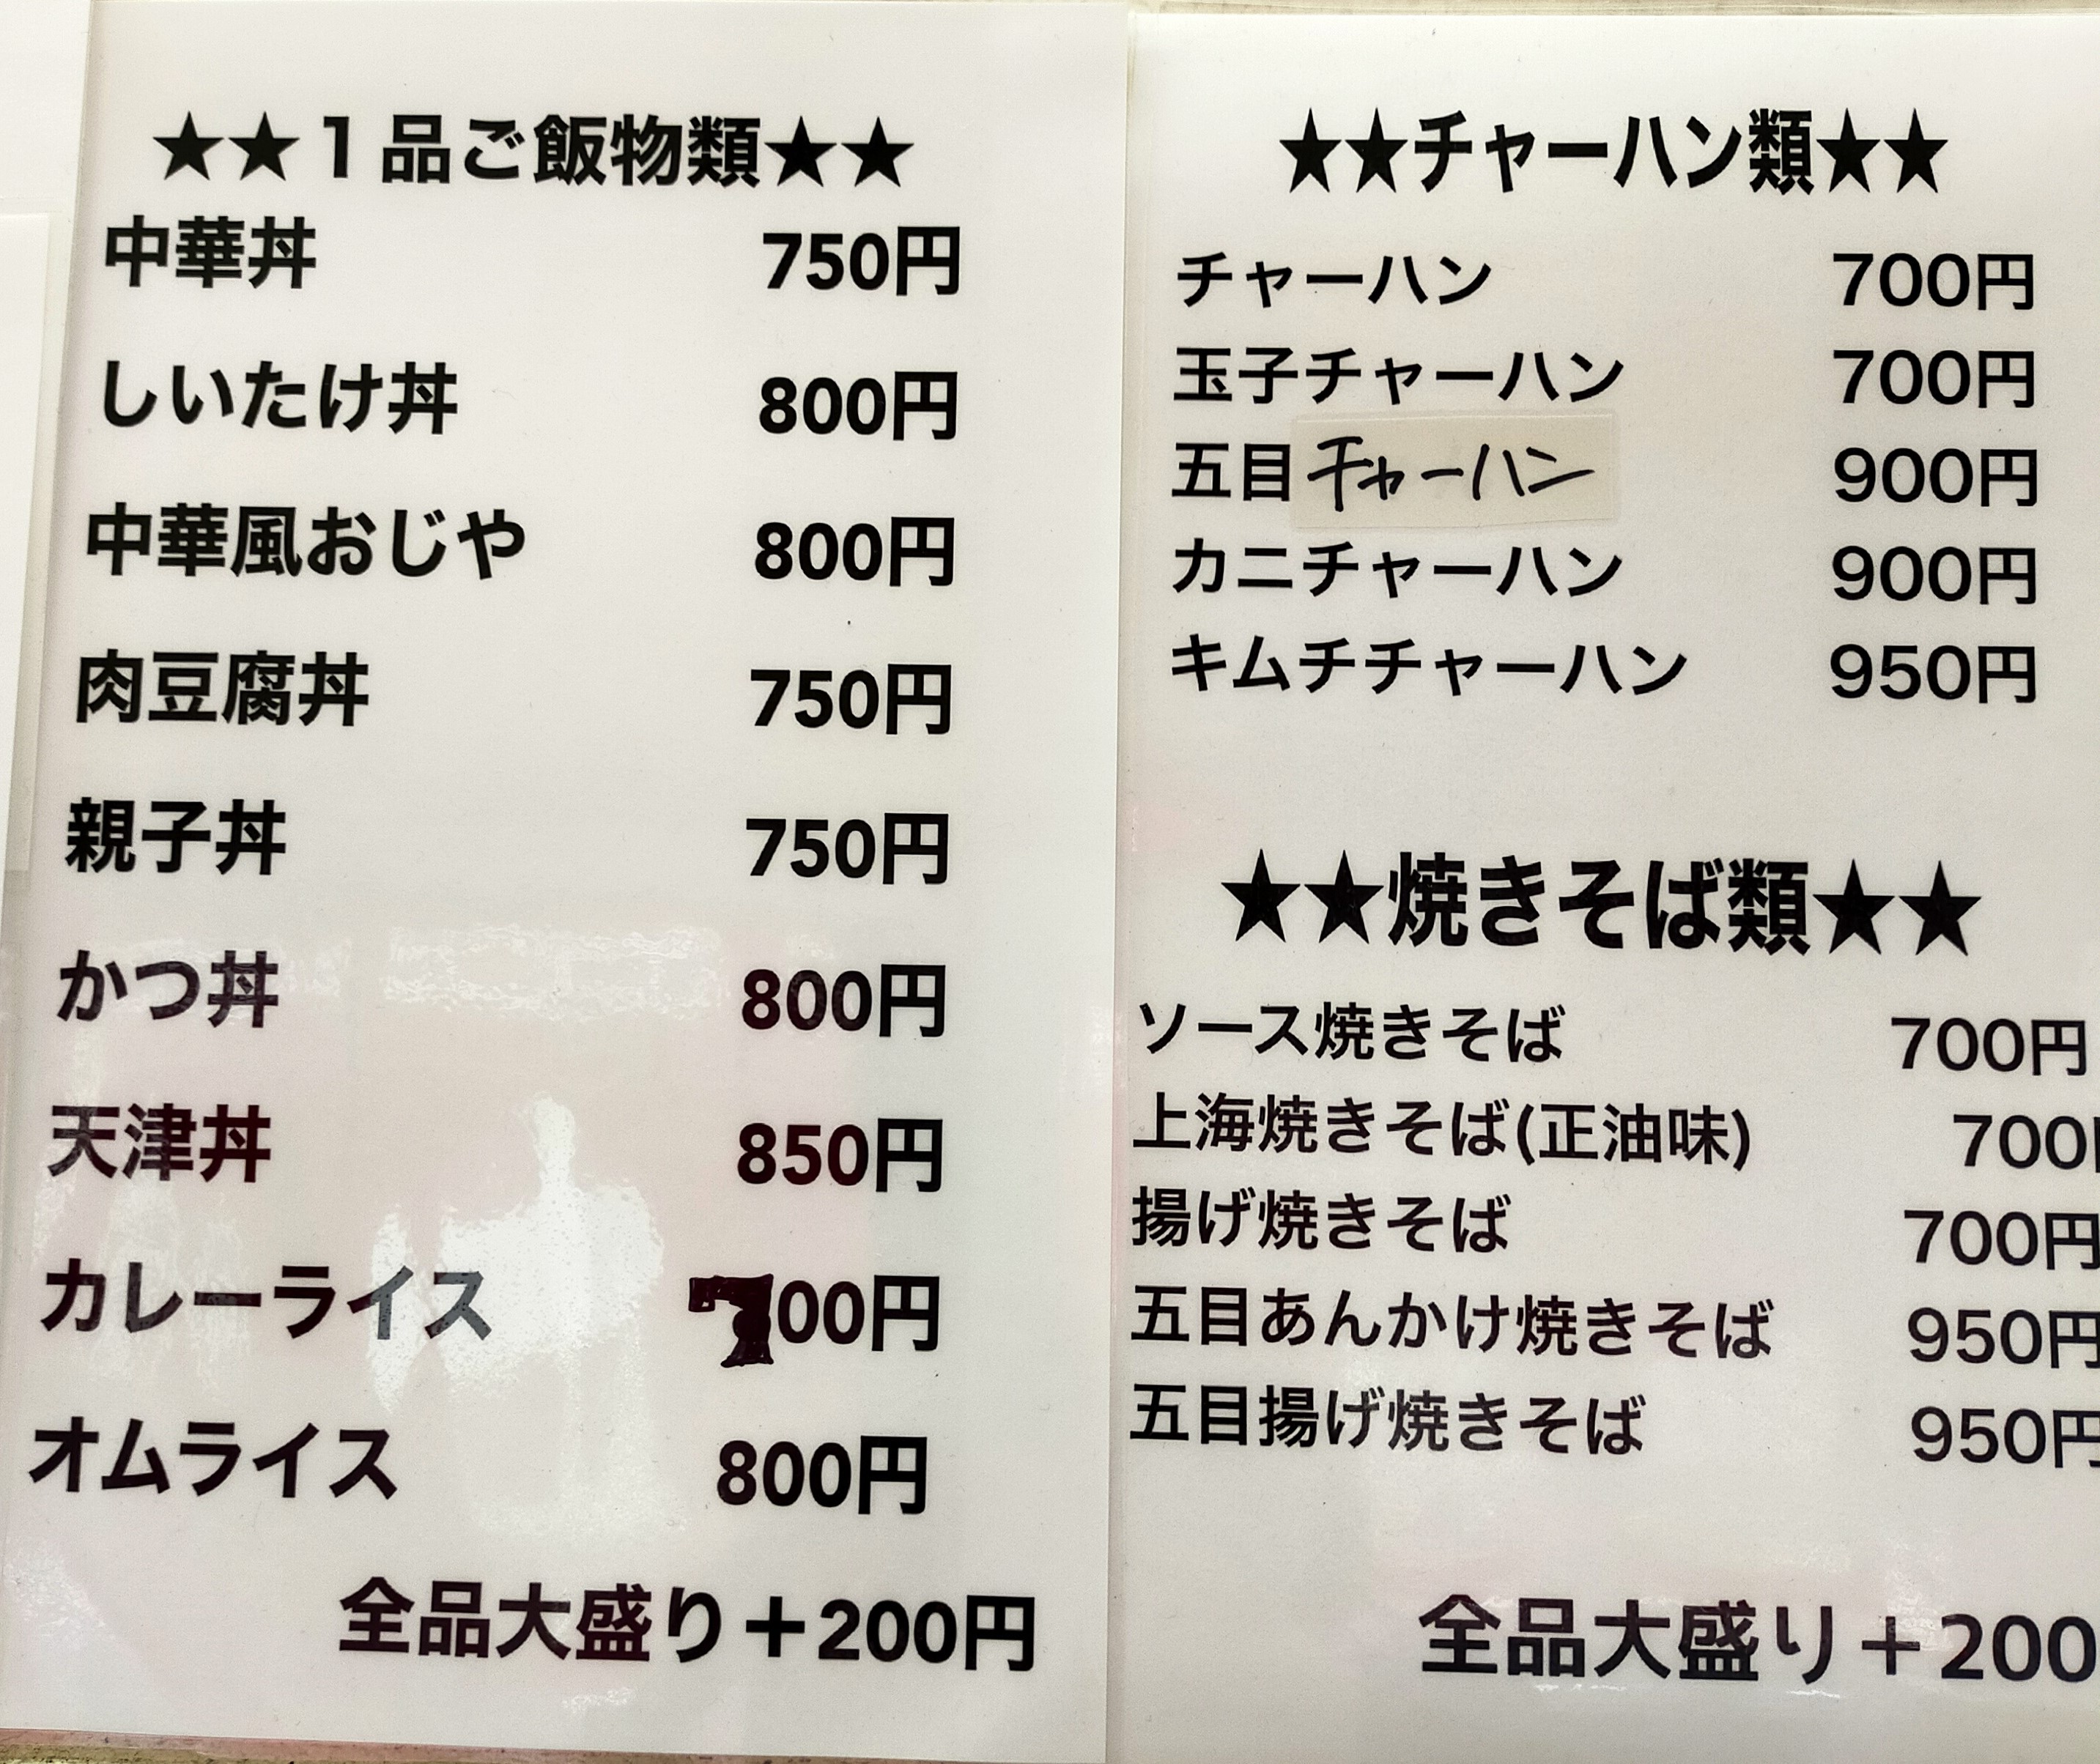 ★★１品ご飯物類★★
中華丼 750円
しいたけ丼 800円
中華風おじや 800円
肉豆腐丼 750円
親子丼 750円
かつ丼 800円
天津丼 850円
カレーライス 700円
オムライス 800円
全品大盛り＋200円
★★チャーハン類★★
チャーハン 700円
玉子チャーハン 700円
五目チャーハン 900円
カニチャーハン 900円
キムチチャーハン 950円
★★焼きそば類★★
ソース焼きそば 700円
上海焼きそば(正油味) 700
揚げ焼きそば 700円
五目あんかけ焼きそば 950円
五目揚げ焼きそば 950円
全品大盛り＋200